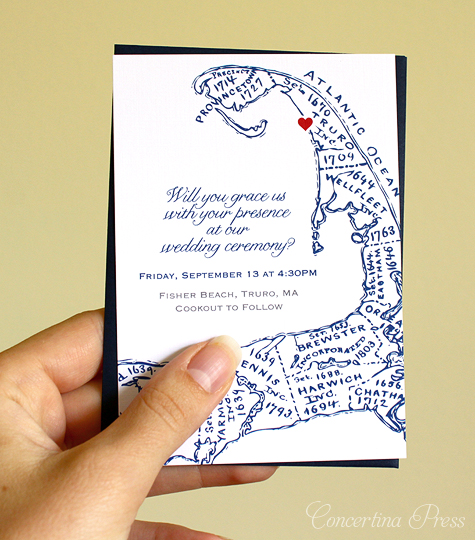 PRECINCTS
1714
PROVINCETOWN
1727
ATLANTIC OCEAN
Set. 1640
TRURO
INC.
1709
1644
WELLFLEET
INC.
1763
Will you grace us
with your presence
at our
wedding ceremony?
Friday, September 13 at 4:30pm
Fisher Beach, Truro, MA
Cookout to Follow
Set. 1644
EASTHAM
OR
Set. 1653.
BREWSTER
INCORPORATED
1803.
Set. 1688.
HARWICH
INC.
1694.
CHATHA
1712
1639.
1639.
ENNIS
INC.
1793.
Set.
YARMO
INC.
1639
Concertina Press